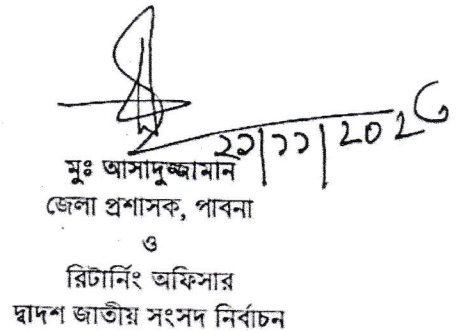 ২১|১১|২০২৩
মুঃ আসাদুজ্জামান
জেলা প্রশাসক, পাবনা
ও
রিটার্নিং অফিসার
দ্বাদশ জাতীয় সংসদ নির্বাচন